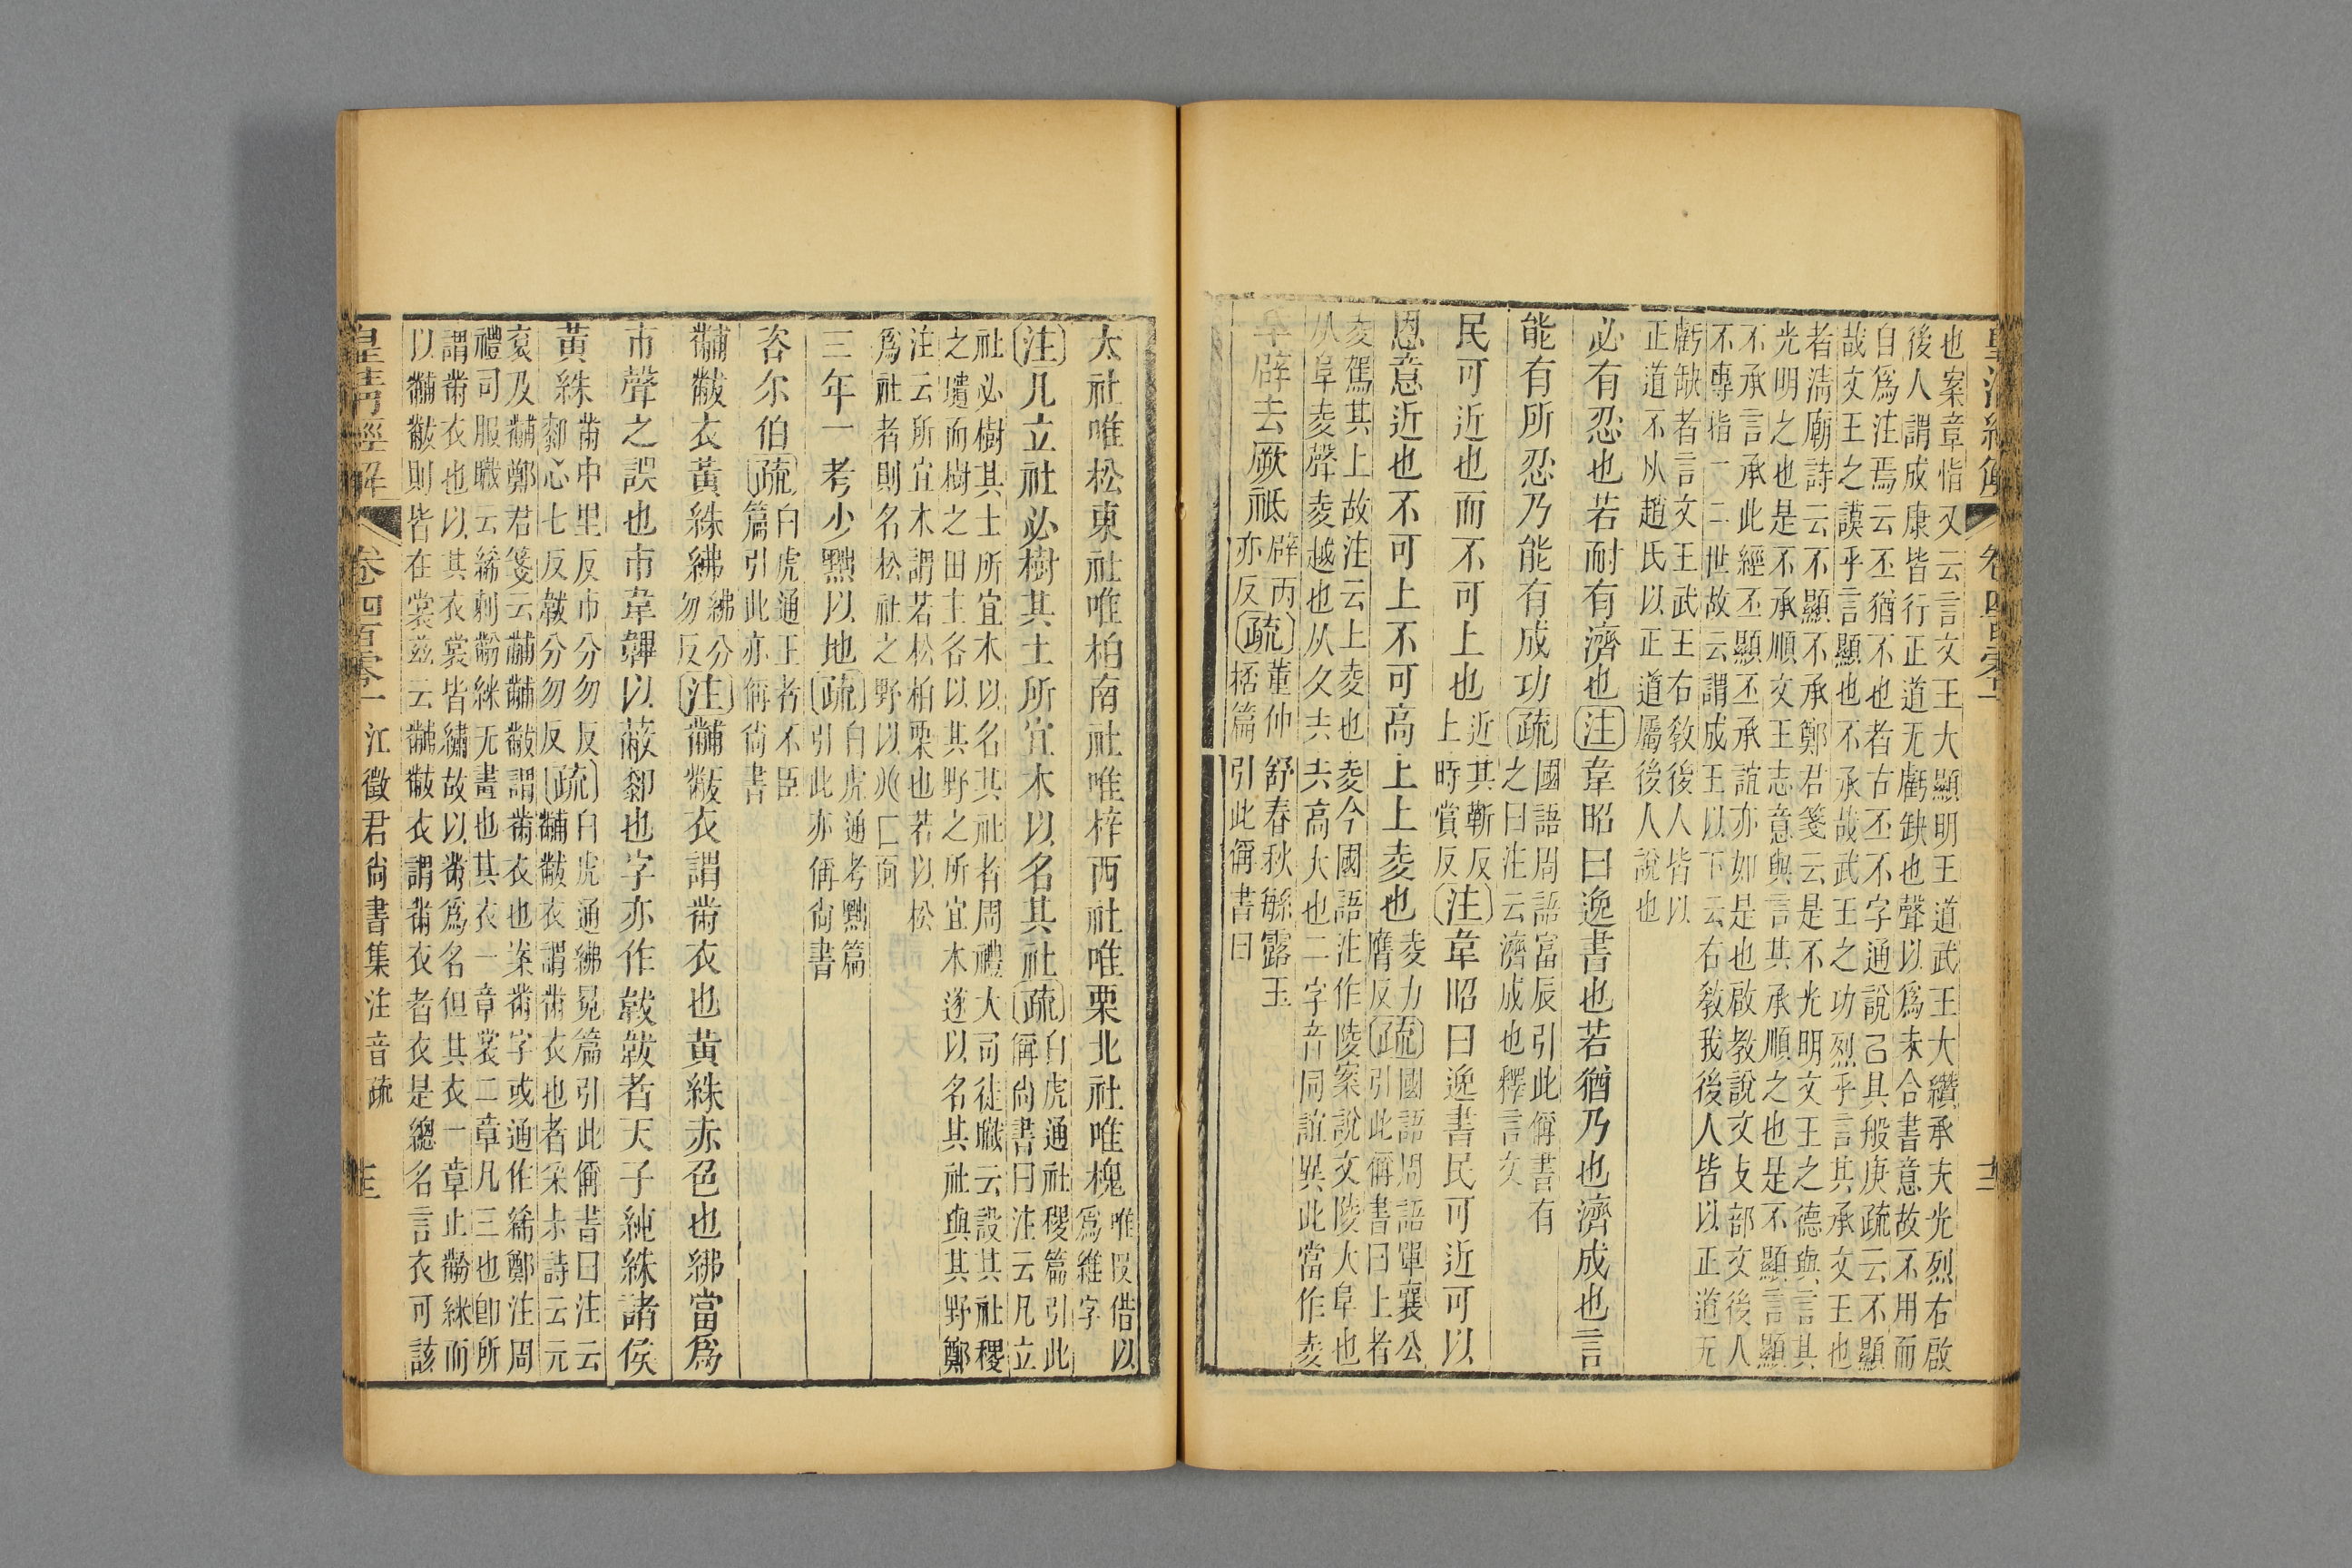 皇淸經解 卷四百零一 十二
也案章恉又云言文王大顯明王道武王大纘承夫光烈右啟
後人謂成康皆行正道无虧缺也聲以爲未合書意故不用而
自爲注焉云丕猶不也者古丕不字通說已具般庚疏云不顯
哉文王之謨乎言顯也不承哉武王之功烈乎言其承文王也
者淸廟詩云不顯不承鄭君箋云是不光明文王之德與言其
光明之也是不承順文王志意與言其承順之也是不顯言顯
不承言承此經丕顯丕承誼亦如是也啟教說文攴部文後人
不專指一二世故云謂成王以下云右敎我後人皆以正道无
虧缺者言文王武王右敎後人皆以
正道不从趙氏以正道屬後人說也
必有忍也若耐有濟也注韋昭曰逸書也若猶乃也濟成也言
能有所忍乃能有成功疏
國語周語富辰引此偁書有
之曰注云濟成也釋言文
民可近也而不可上也
近其靳反
上時賞反
注韋昭曰逸書民可近可以
恩意近也不可上不可高上上夌也
夌力
膺反
疏
國語周語單襄公
引此偁書曰上者
夌駕其上故注云上夌也夌今國語注作陵案說文陵大阜也
从阜夌聲夌越也从夂夫夫高大也二字音同誼異此當作夌
辟去厥祗
辟丙
亦反
疏
董仲舒春秋繇露玉
桮篇引此偁書曰
太社唯松東社唯柏南社唯梓西社唯栗北社唯槐
唯叚借以
爲維字
注凡立社必樹其土所宜木以名其社疏
白虎通社稷篇引此
偁尙書曰注云凡立
社必樹其土所宜木以名其社者周禮大司徒職云設其社稷
之壝而樹之田主各以其野之所宜木遂以名其社與其野鄭
注云所宜木謂若松柏栗也若以松
爲社者則名松社之野以
三年一考少黜以地疏
白虎通考黜篇
引此亦偁尙書
咨尔伯疏
白虎通王者不臣
篇引此亦偁尙書
黼黻衣黃絑紼
紼分
勿反
注黼黻衣謂黹衣也黃絑赤色也紼當爲
巿聲之誤也巿韋韠以蔽厀也字亦作韍韍者天子純絑諸侯
黃絑
黹中里反巿分勿反
厀心七反韍分勿反
疏
白虎通紼冕篇引此偁書曰注云
黼黻衣謂黹衣也者采尗詩云元
袞及黼鄭君箋云黼黼黻謂黹衣也案黹字或通作絺鄭注周
禮司服職云絺刺黺絑无畫也其衣一章裳二章凡三也卽所
謂黹衣也以其衣裳皆繡故以黹爲名但其衣一章止黺絑而
以黼黻則皆在裳兹云黼黻衣謂黹衣者衣是總名言衣可該
皇淸經解 卷四百零一 江徵君尙書集注音疏 十三